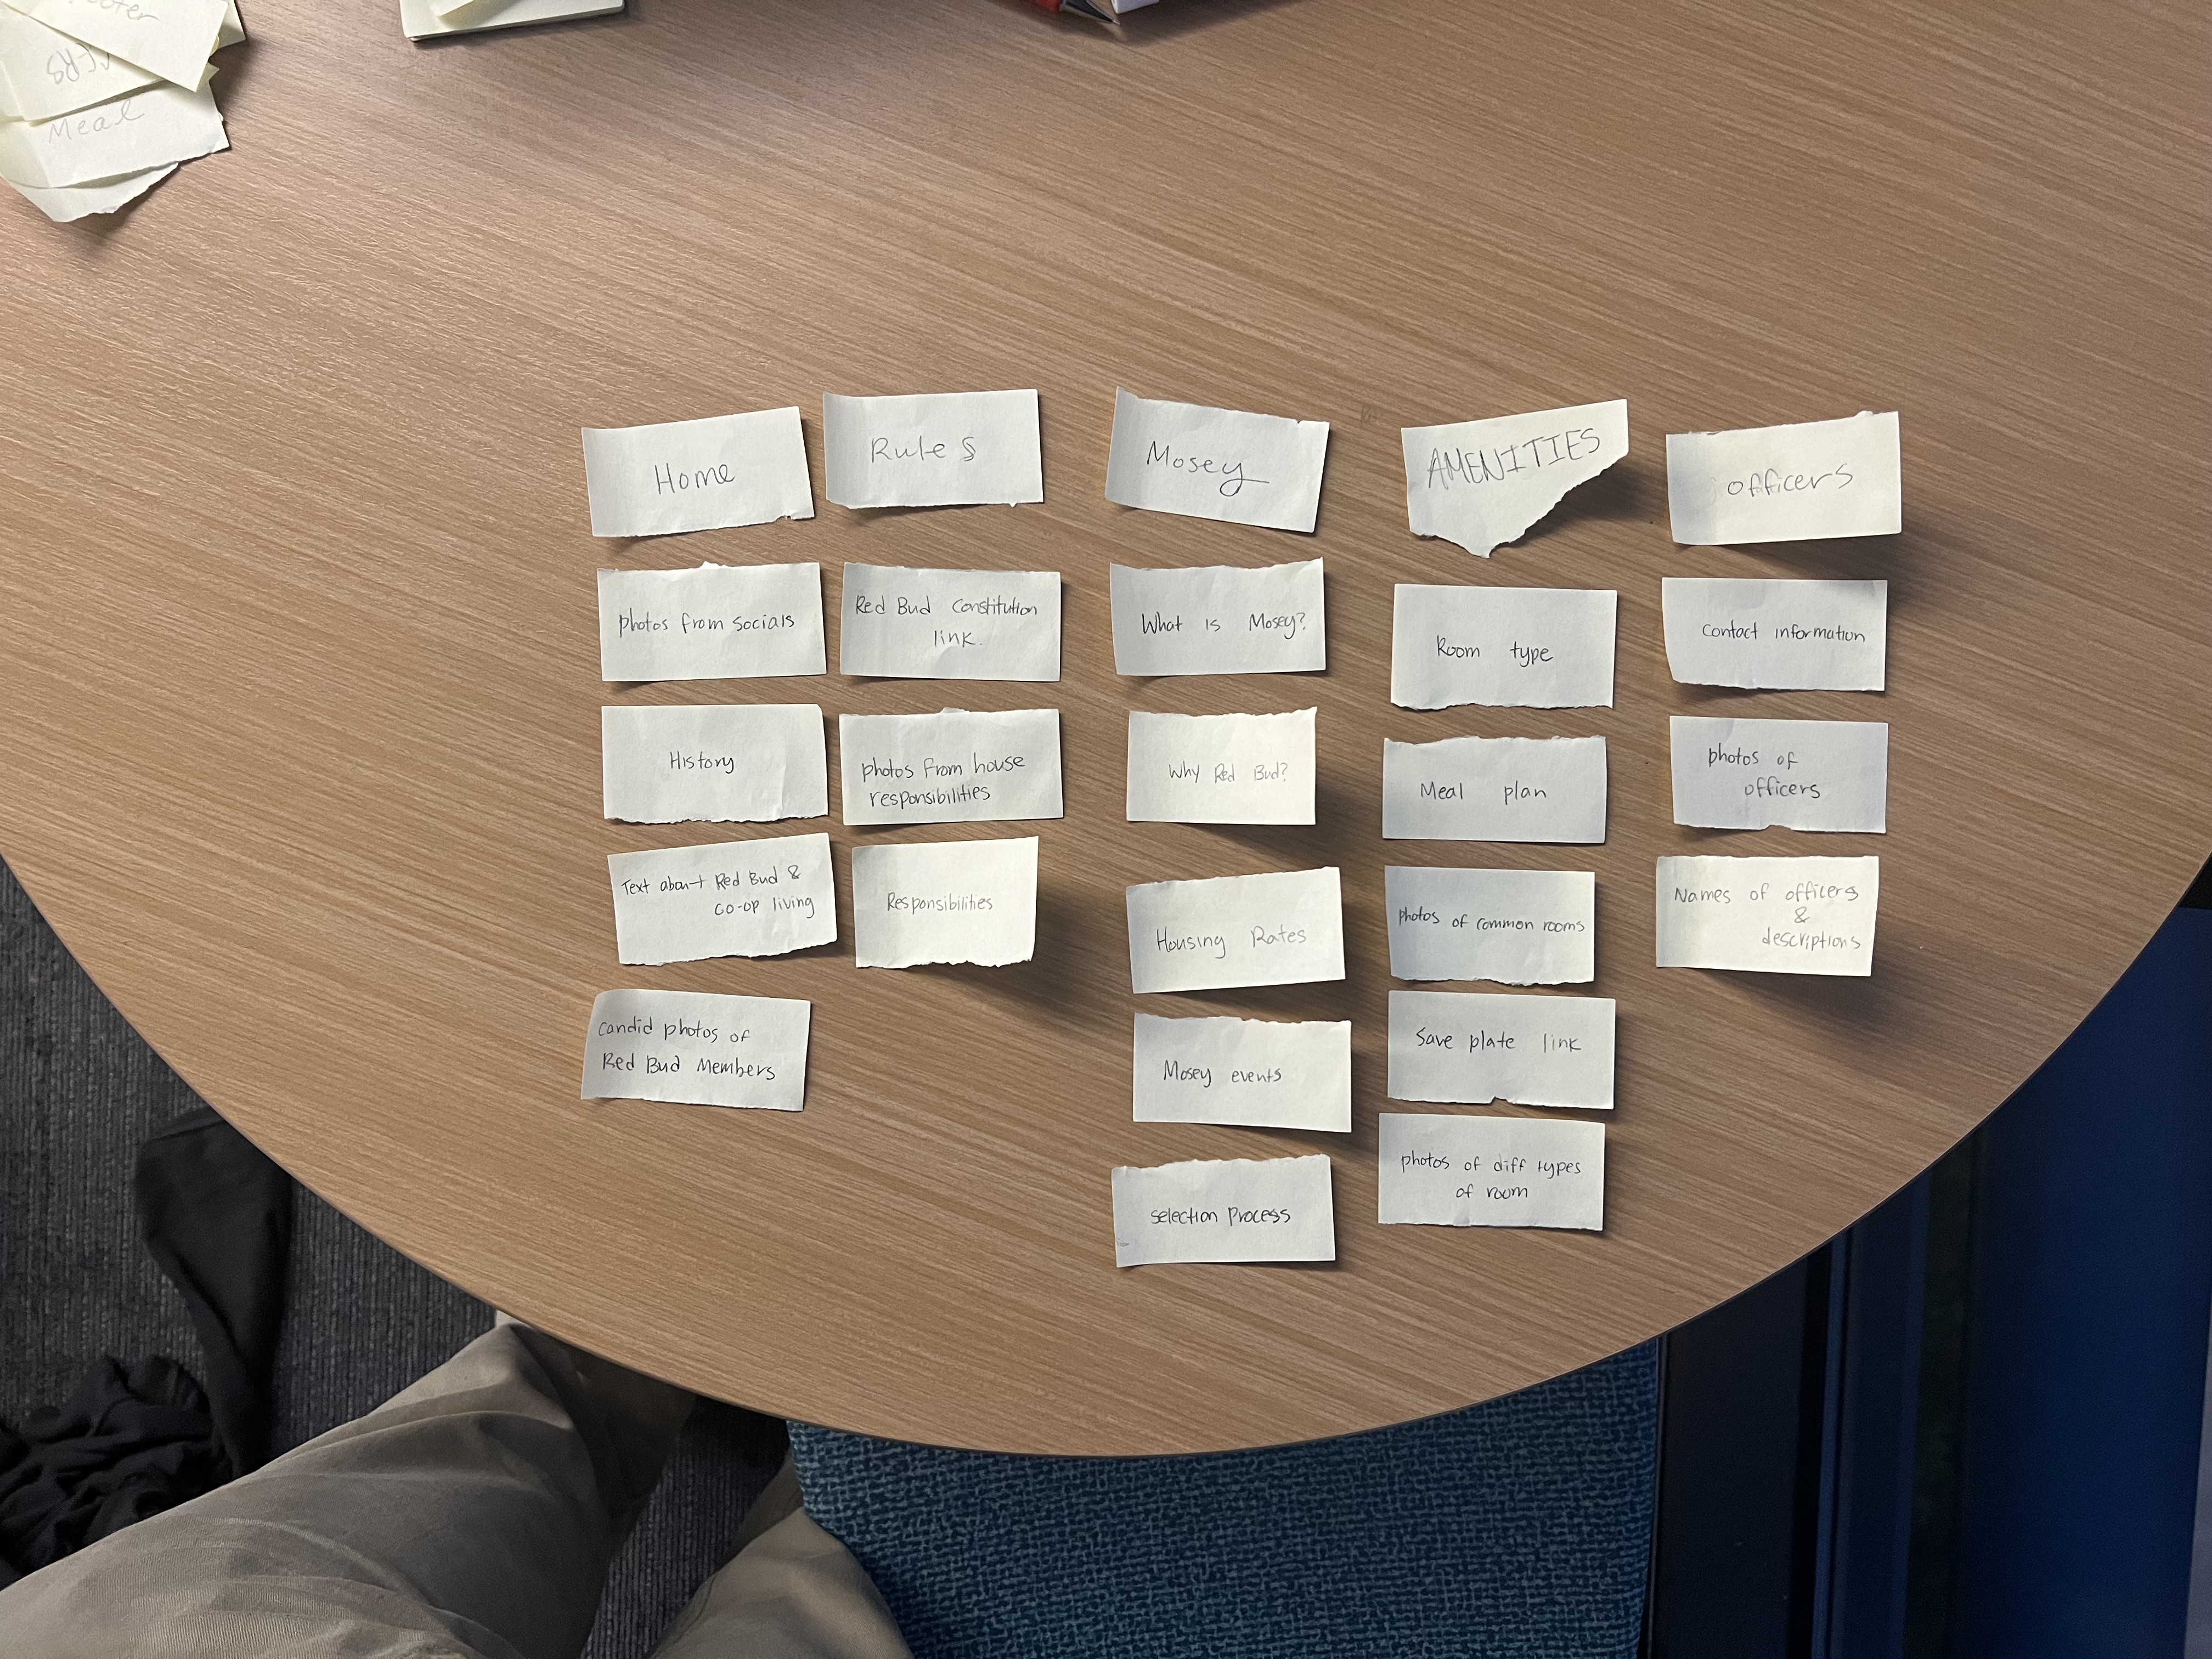 Meal
Home
photos from socials
History
Text about Red Bud &
co-op living
candid photos of
Red Bud Members
Rules
Red Bud Constitution
link.
photos from house
responsibilities
Responsibilities
Mosey
What is Mosey?
Why Red Bud?
Housing Rates
Mosey events
selection process
AMENITIES
Room type
Meal plan
photos of common rooms
Save plate link
photos of diff types
of room
officers
contact information
photos of
officers
Names of officers
&
descriptions